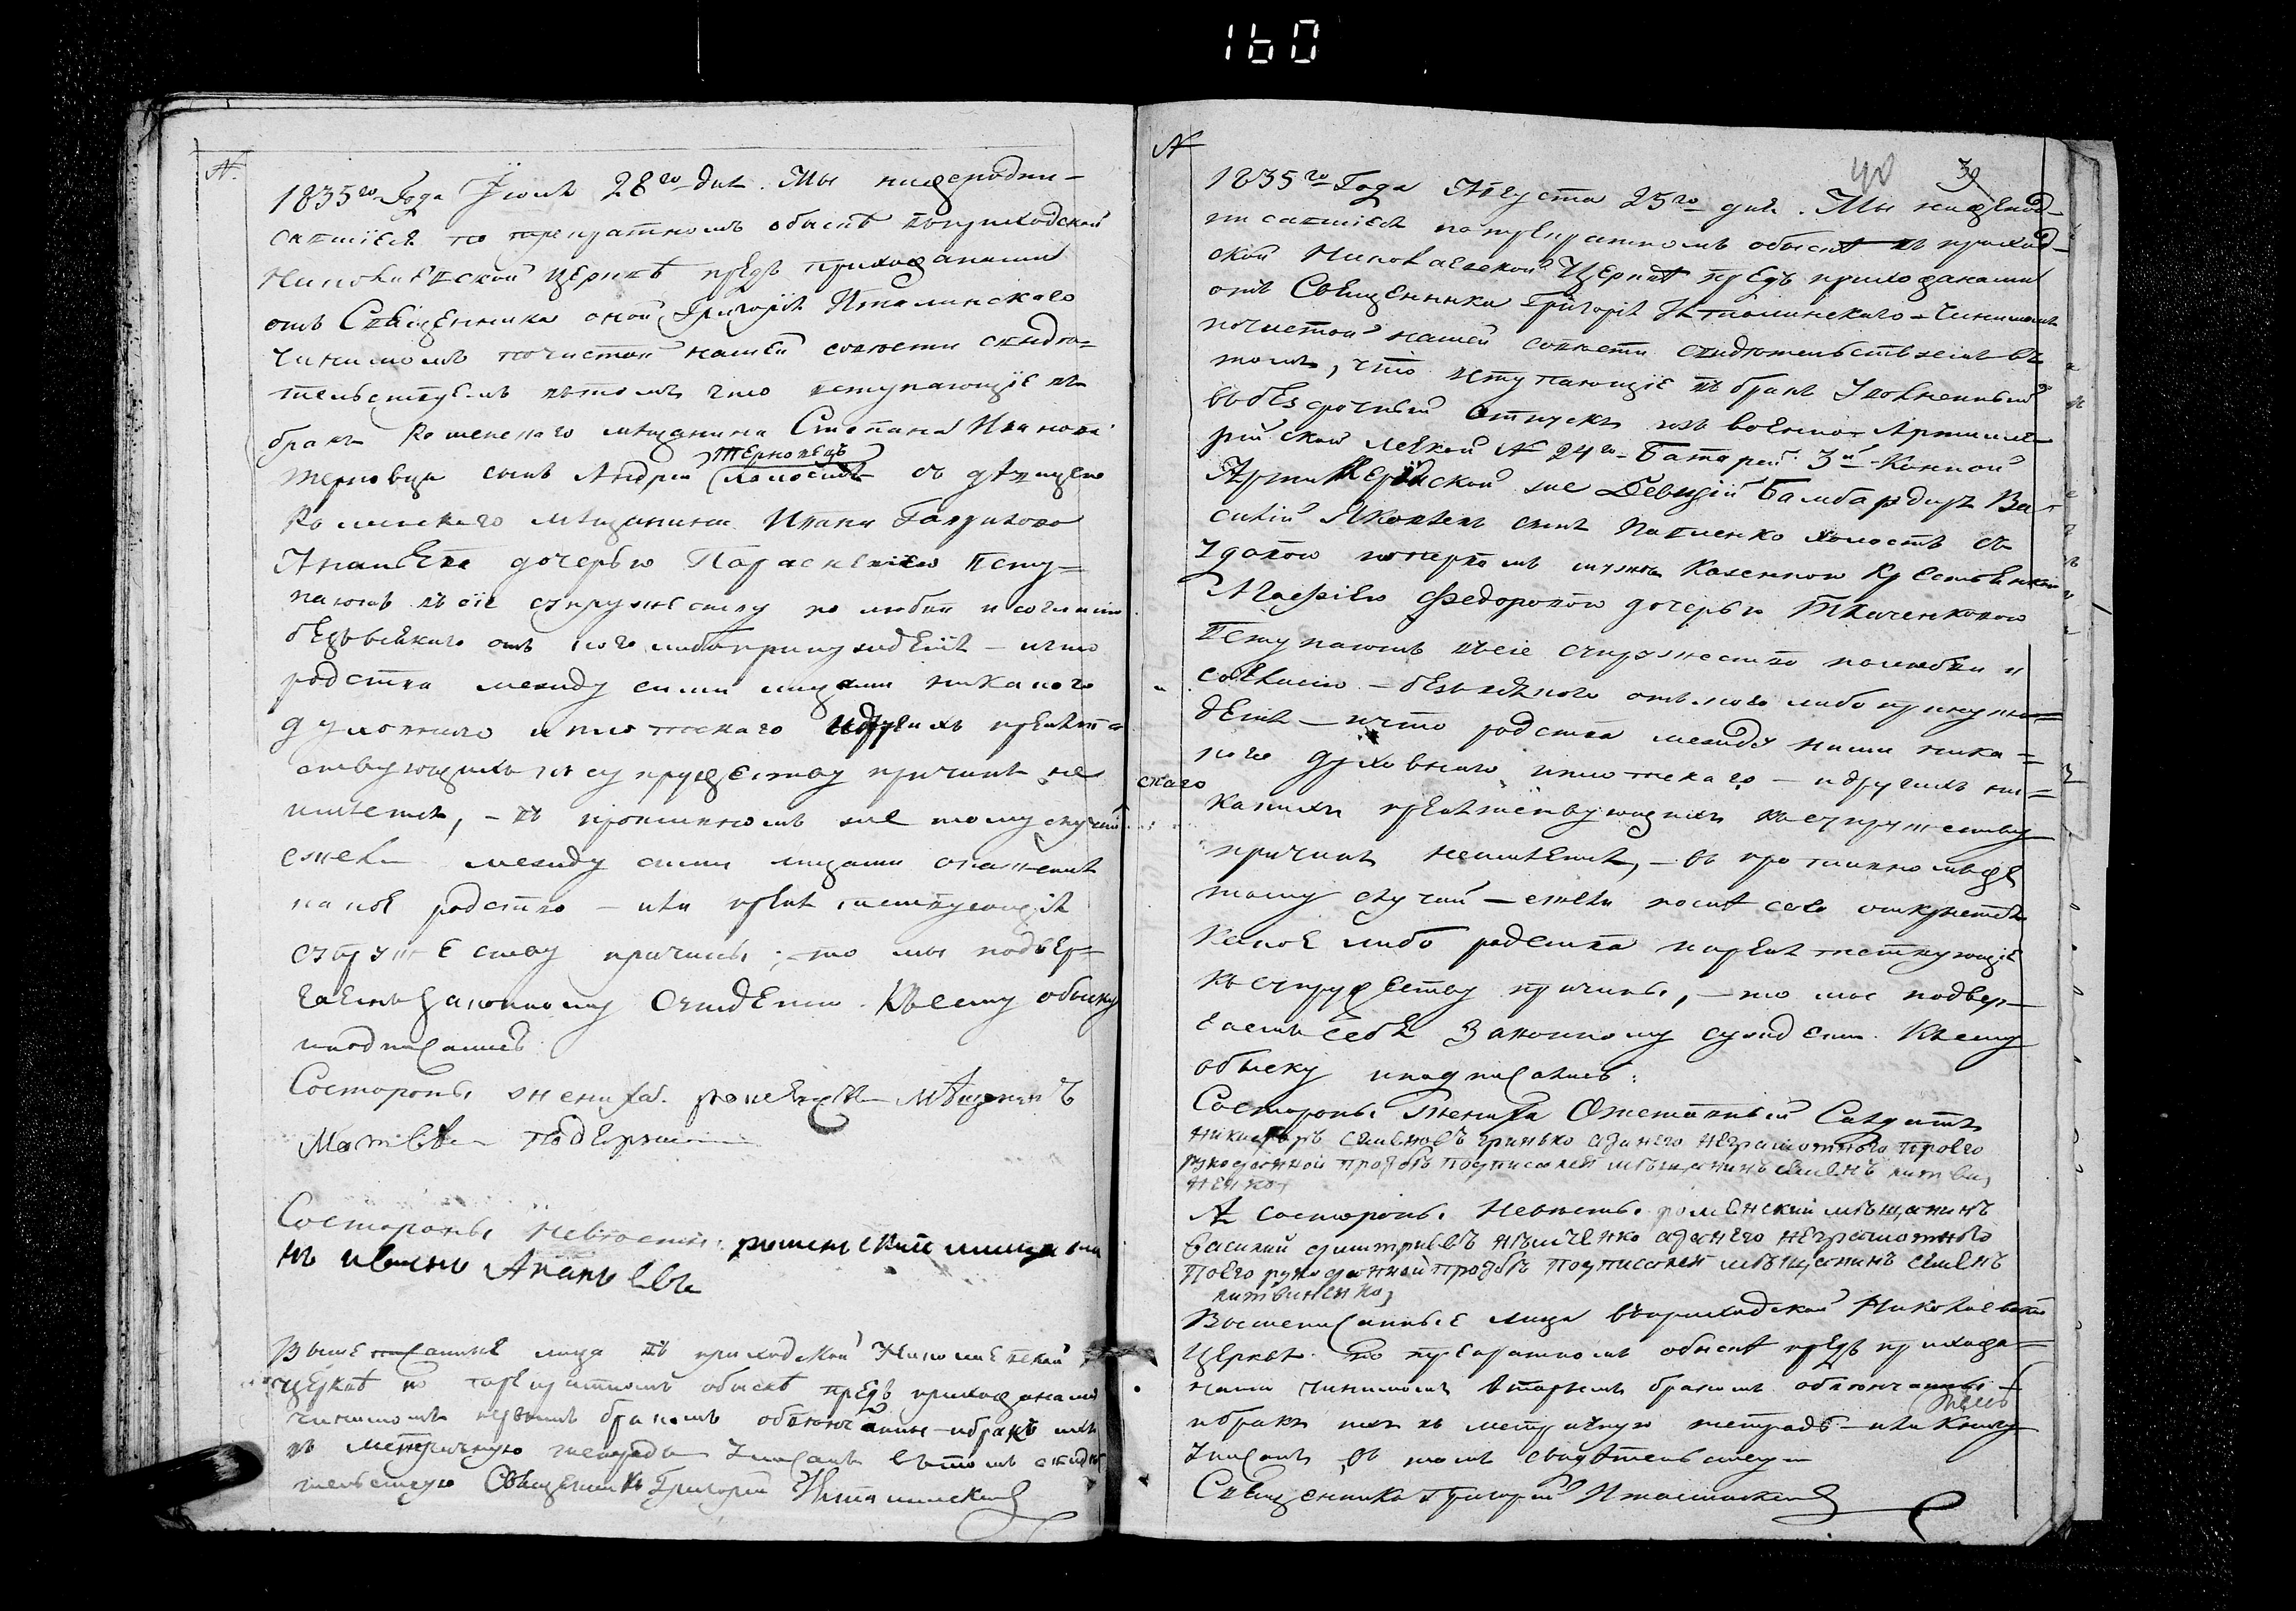 160
N.
1835го Года Iюля 28го дня. Мы нижеподпи-
савшiеся по трекратномъ обыскѣ въприходской
Николаевской церквѣ предъ прихожанами
отъ Священника оной Григорiя Италинскаго
чинимомъ почистой нашей совѣсти свидѣ-
тельствуемъ вътомъ что вступающiе въ
бракъ Роменскаго мѣщанина Стефана Иванова
Терновца сынъ Андрей Терновецъ холостъ съ дѣвицею
Роменскаго мѣщанина Ивана Гаврилова
Ананьева дочерью Параскевiею всту-
паютъ въсiе супружество по любви и согласiю
безъвсякаго отъ кого либо принужденiя – ичто
родства между сими лицами никакого
духовнаго иплотскаго идругихъ препят-
ствующихъ къ супружеству причинъ не
имѣется, – въ противномъ же тому случаѣ
ежели между сими лицами окажется
какое родство – или препятствующiя
супружеству причины, – то мы подвер-
гаемъ законному Сужденiю. Късему обыску
иподписались
Состороны жениха. роменскiй мѣщанинъ
Матвѣй
Состороны Невѣсты роменский мищани
нъ иванъ Ананьевъ
Вышеписанные лица въ приходской Николаевской
церквѣ по трекратномъ обыскѣ предъ прихожанами
чинимомъ первымъ бракомъ обвѣнчанны – ибракъ ихъ
въ метричную тетрадь записанъ вътомъ свидѣ
тельствую Священникъ Григорiй Италинскiй
N
40 39
1835го Года Августа 25го дня. Мы нижепод-
писавшiеся потрекратномъ обыскѣ въ приход-
ской Николаевской Церквѣ предъ прихожанами
отъ Священника Григорiя Италинскаго – чинимомъ
почистой нашей совѣсти свидѣтельствуемъ въ
томъ, что вступающiе въ бракъ Уволненный
въбезсрочный отпускъ изъ военно-Артилле-
рiйской легкой N 24го Батареи 3й Конной
Артиллерiйской же Бамбардиръ Ва-
силiй Яковлевъ сынъ Павленко холостъ съ
удовою поперьвомъ мужѣ Казенною Крестьянкою
Марфiею Федоровою дочерью Ткаченковою
Вступаютъ въсiе супружество полюбви и
согласiю – безъвсякого отъкого либо принуж-
денiя – ичто родства между ними ника-
кого духовнаго иплотскаго – идругихъ ни-
скаго
какихъ препятствующихъ къ супружеству
причинъ неимѣется, – въ противномъже
тому случаѣ – ежели послѣ сего откроется
какое либо родства ипрепятствующiе
къ супружеству причины, – то мы подвер-
гаемъ себя Законному сужденiю. Късему
обыску иподписались:
Состороны Жениха Отставный Салдатъ
никифоръ семѣновъ гринько азанего неграмотнаго поего
рукоданной прозбѣ подписался мѣщанинъ семенъ литви,
ненко,
А состороны Невѣсты роменский мѣщанинъ
василий димитриевъ нѣмченко азанего неграмотнаго
поего рукоданной прозбѣ подписался мѣщанинъ семенъ
литвиненко,
Вышеписанные лица въприходской Николаевской
церквѣ по трекратномъ обыскѣ предъ прихожа-
нами чинимомъ вторымъ бракомъ обвѣнчанны –
ибракъ ихъ въ метричную тетрадь – или Книгу
записанъ въ томъ свидѣтельствую
Священникъ Григорiй Италинскiй